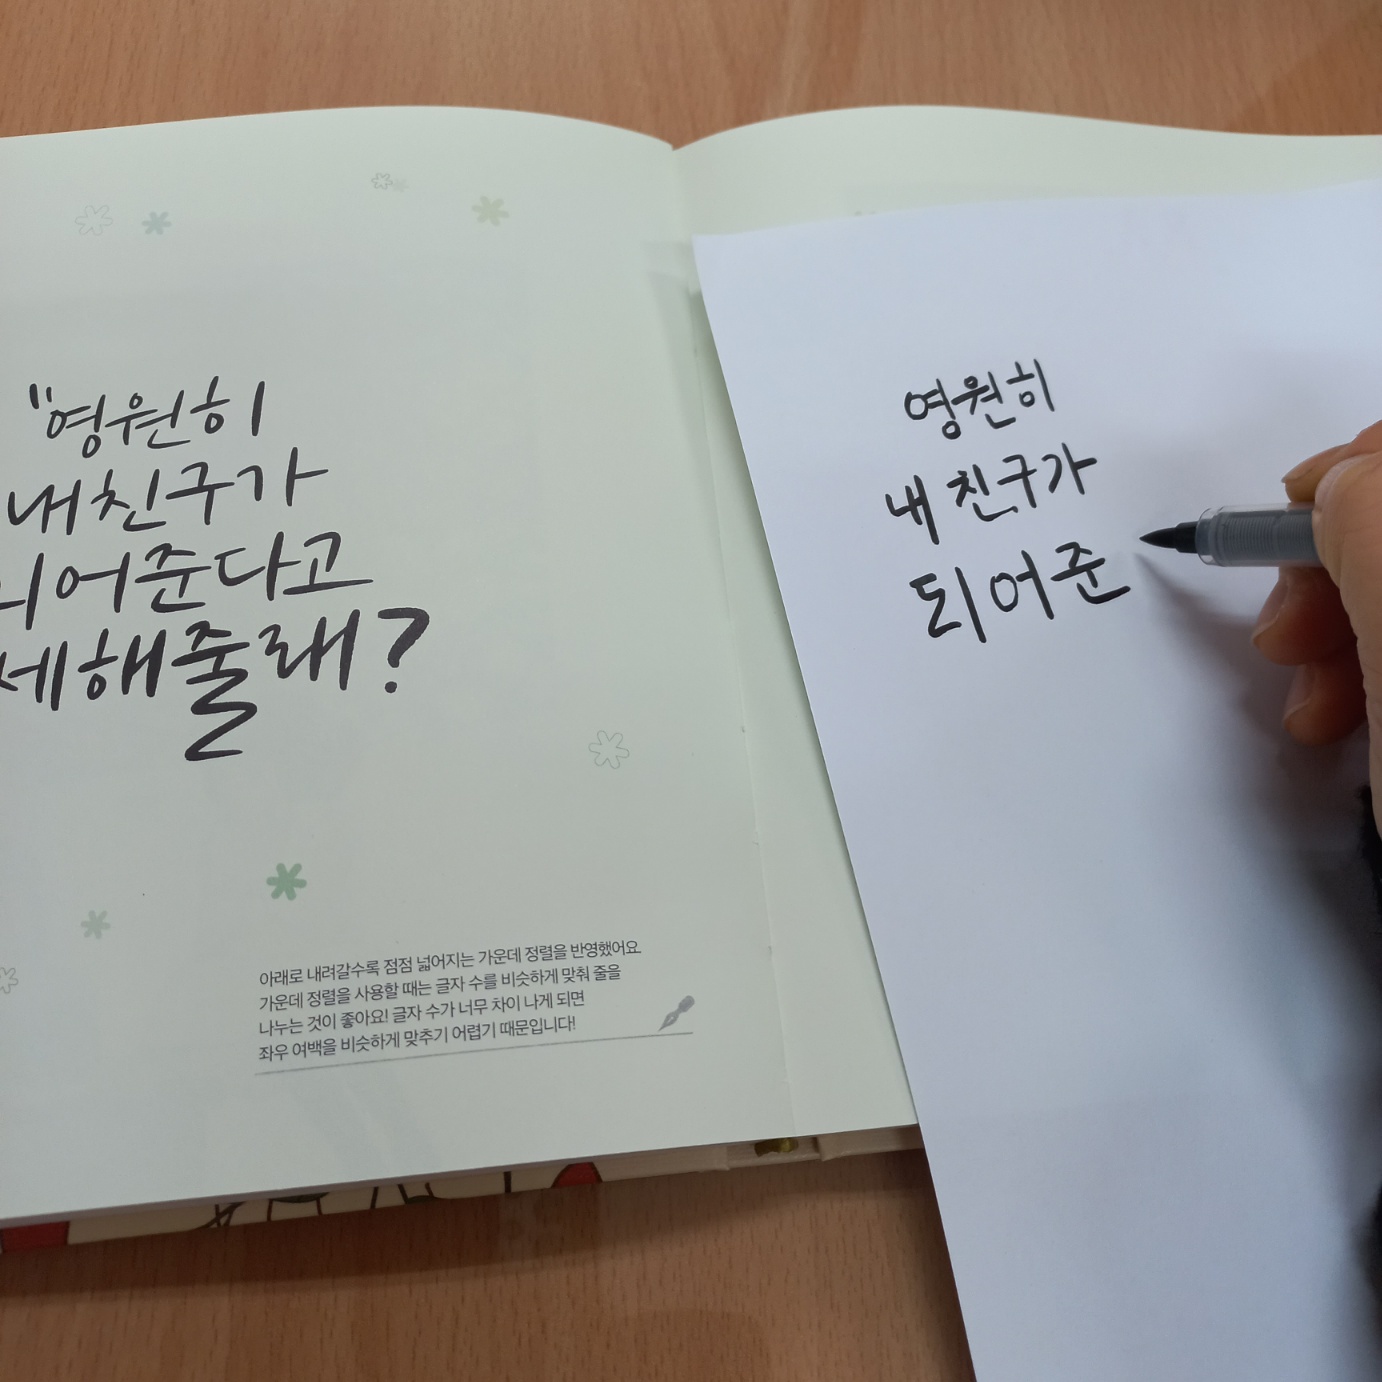 "영원히
내 친구가
되어준다고
세해줄래?
아래로 내려갈수록 점점 넓어지는 가운데 정렬을 반영했어요.
가운데 정렬을 사용할 때는 글자 수를 비슷하게 맞춰 줄을
나누는 것이 좋아요! 글자 수가 너무 차이 나게 되면
좌우 여백을 비슷하게 맞추기 어렵기 때문입니다!
영원히
내 친구가
되어준